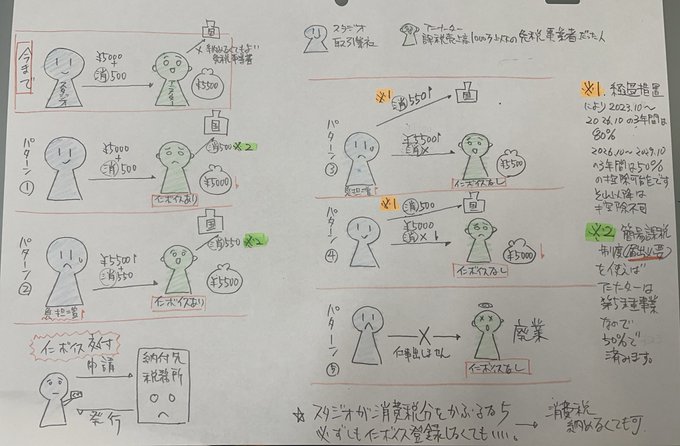 スタジオ
取引会社
アニメーター
課税売上高1000万以下の免税事業者だった人
今まで
¥5000
+
消500
国
×納めなくてもよい
免税事業者
スタジオ
¥5500
パターン①
¥5000
+
消500
国
消500 ※2
¥5000
インボイスあり
パターン②
¥5500
+
消550
国
消550 ※2
¥5500
負担増↑
インボイスあり
インボイス交付
申請
発行
納付先
税務所
※1
消500↑
国
パターン③
¥5500↑
消×
¥5500
負担増↑
インボイスなし
※1
消500
国
パターン④
¥5000
消×↓
¥5000
インボイスなし
パターン⑤
×
仕事出しません
廃業
インボイスなし
※1 経過措置
により2023.10〜
2026.10の3年間は
80%
2026.10〜2029.10
の3年間は50%
の控除可能です
それ以降は
控除不可
※2 簡易課税
制度(届出必要)
を使えば
アニメーターは
第5種事業
なので
50%で
済みます。
☆スタジオが消費税分をかぶるなら
必ずしもインボイス登録しなくてもいい…
→消費税
納めなくても可